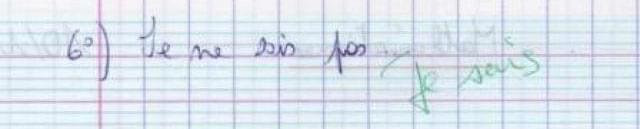 6°) Je ne sis pas. Je sais